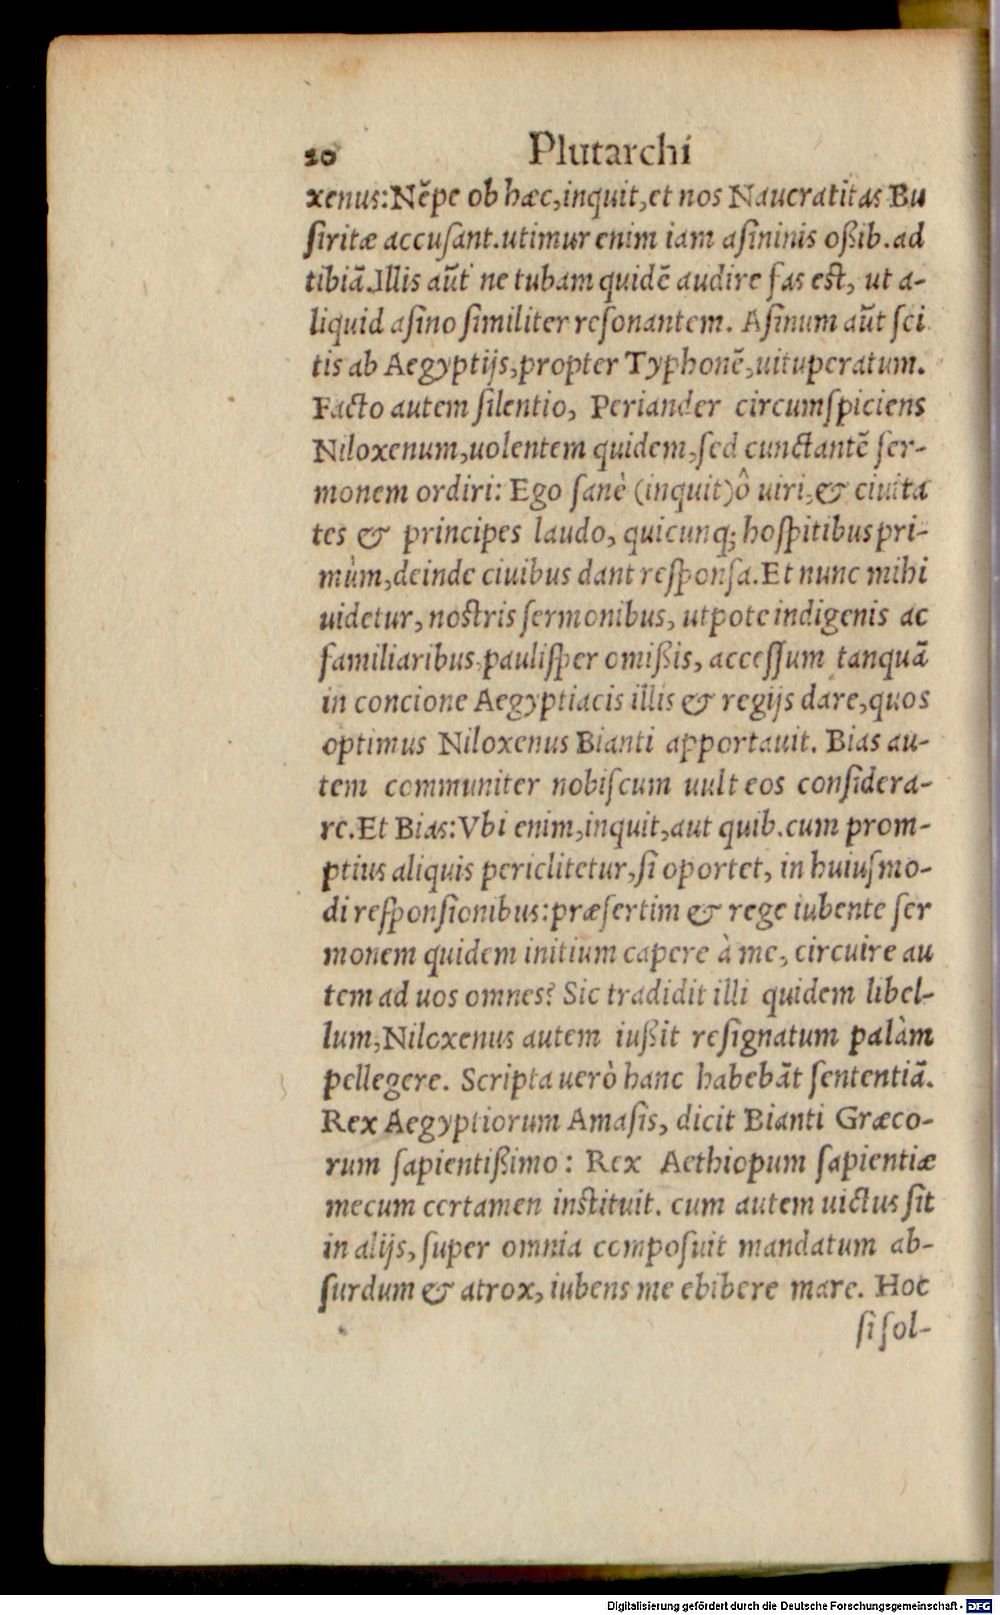 20 Plutarchi
xenus:Nẽpe ob hæc,inquit,et nos Naucratitas Bu
ſiritæ accuſant.utimur enim iam aſininis oßib.ad
tibiã.Illis aũt ne tubam quidẽ audire fas eſt, ut a-
liquid aſino ſimiliter reſonantem. Aſinum aũt ſci
tis ab Aegyptijs,propter Typhonẽ,uituperatum.
Facto autem ſilentio, Periander circumſpiciens
Niloxenum,uolentem quidem,ſed cunctantẽ ſer-
monem ordiri: Ego ſanè (inquit)ô uiri,& ciuita
tes & principes laudo, quicunq; hoſpitibus pri-
mùm,deinde ciuibus dant reſponſa.Et nunc mihi
uidetur, noſtris ſermonibus, utpote indigenis ac
familiaribus,pauliſper omißis, acceſſum tanquã
in concione Aegyptiacis illis & regijs dare,quos
optimus Niloxenus Bianti apportauit. Bias au-
tem communiter nobiſcum uult eos conſidera-
re.Et Bias:Vbi enim,inquit,aut quib.cum prom-
ptius aliquis periclitetur,ſi oportet, in huiuſmo-
di reſponſionibus:præſertim & rege iubente ſer
monem quidem initium capere à me, circuire au
tem ad uos omnes? Sic tradidit illi quidem libel-
lum,Niloxenus autem iußit reſignatum palàm
pellegere. Scripta uerò hanc habebãt ſententiã.
Rex Aegyptiorum Amaſis, dicit Bianti Græco-
rum ſapientißimo: Rex Aethiopum ſapientiæ
mecum certamen inſtituit. cum autem uictus ſit
in alijs, ſuper omnia compoſuit mandatum ab-
ſurdum & atrox, iubens me ebibere mare. Hoc
ſi ſol-
Digitalisierung gefördert durch die Deutsche Forschungsgemeinschaft - DFG